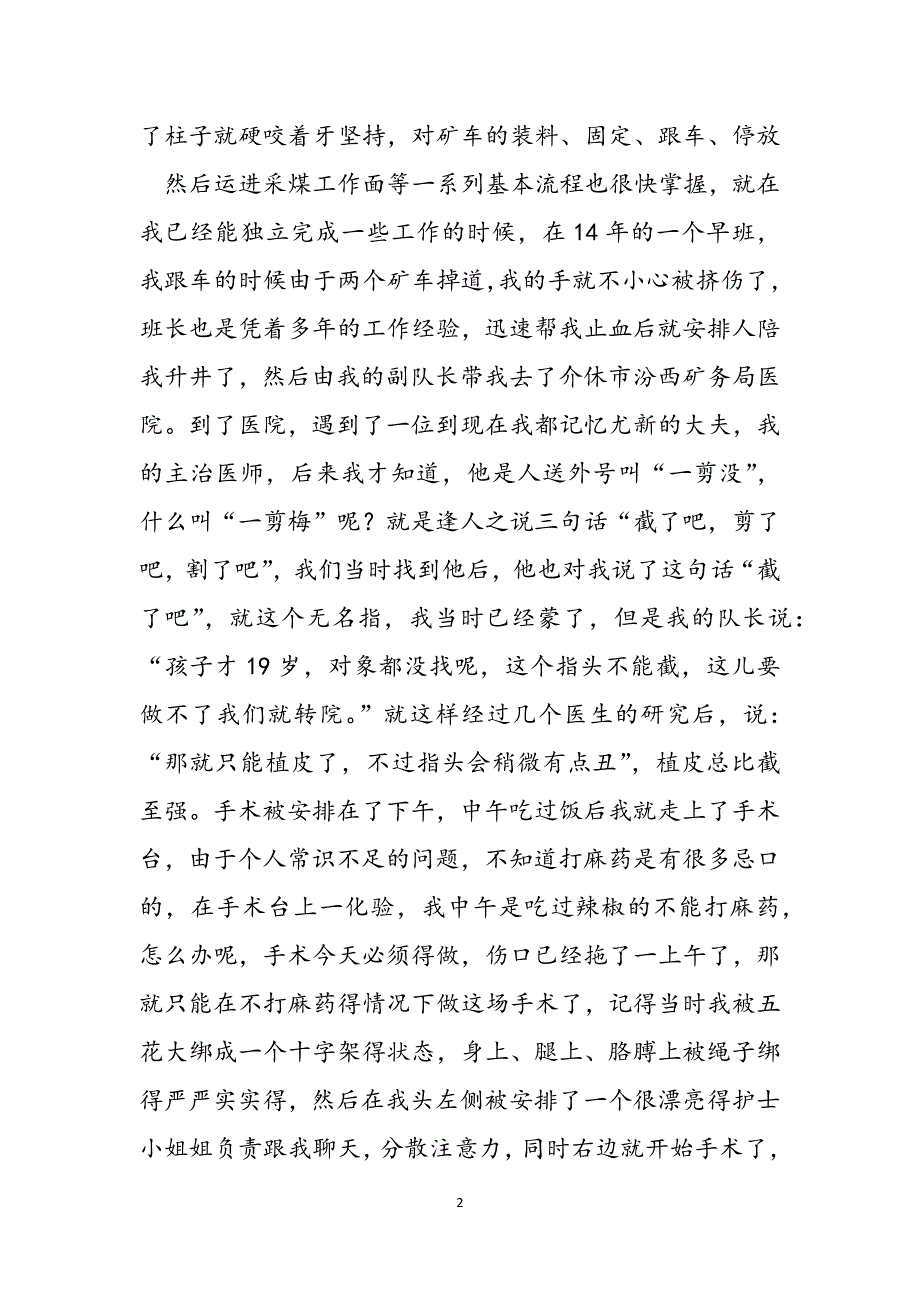 了柱子就硬咬着牙坚持，对矿车的装料、固定、跟车、停放
然后运进采煤工作面等一系列基本流程也很快掌握，就在
我已经能独立完成一些工作的时候，在 14 年的一个早班，
我跟车的时候由于两个矿车掉道，我的手就不小心被挤伤了，
班长也是凭着多年的工作经验，迅速帮我止血后就安排人陪
我升井了，然后由我的副队长带我去了介休市汾西矿务局医
院。到了医院，遇到了一位到现在我都记忆尤新的大夫，我
的主治医师，后来我才知道，他是人送外号叫“一剪没”，
什么叫“一剪梅”呢？就是逢人之说三句话“截了吧，剪了
吧，割了吧”，我们当时找到他后，他也对我说了这句话“截
了吧”，就这个无名指，我当时已经蒙了，但是我的队长说：
“孩子才 19 岁，对象都没找呢，这个指头不能截，这儿要
做不了我们就转院。”就这样经过几个医生的研究后，说：
“那就只能植皮了，不过指头会稍微有点丑”，植皮总比截
至强。手术被安排在了下午，中午吃过饭后我就走上了手术
台，由于个人常识不足的问题，不知道打麻药是有很多忌口
的，在手术台上一化验，我中午是吃过辣椒的不能打麻药，
怎么办呢，手术今天必须得做，伤口已经拖了一上午了，那
就只能在不打麻药得情况下做这场手术了，记得当时我被五
花大绑成一个十字架得状态，身上、腿上、胳膊上被绳子绑
得严严实实得，然后在我头左侧被安排了一个很漂亮得护士
小姐姐负责跟我聊天，分散注意力，同时右边就开始手术了，
2